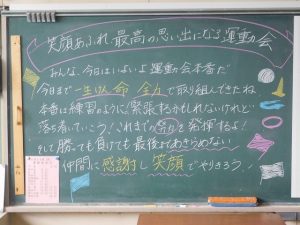 笑顔あふれ 最高の思い出になる運動会
みんな、今日はいよいよ運動会本番だ
今日まで一生けん命 全力で取り組んできたね
本番は練習のように!緊張するかもしれないけれど
落ち着いていこう!これまでの努力を発揮するよ!
そして勝っても負けても最後まであきらめない!
仲間に感謝し 笑顔でやりきろう!